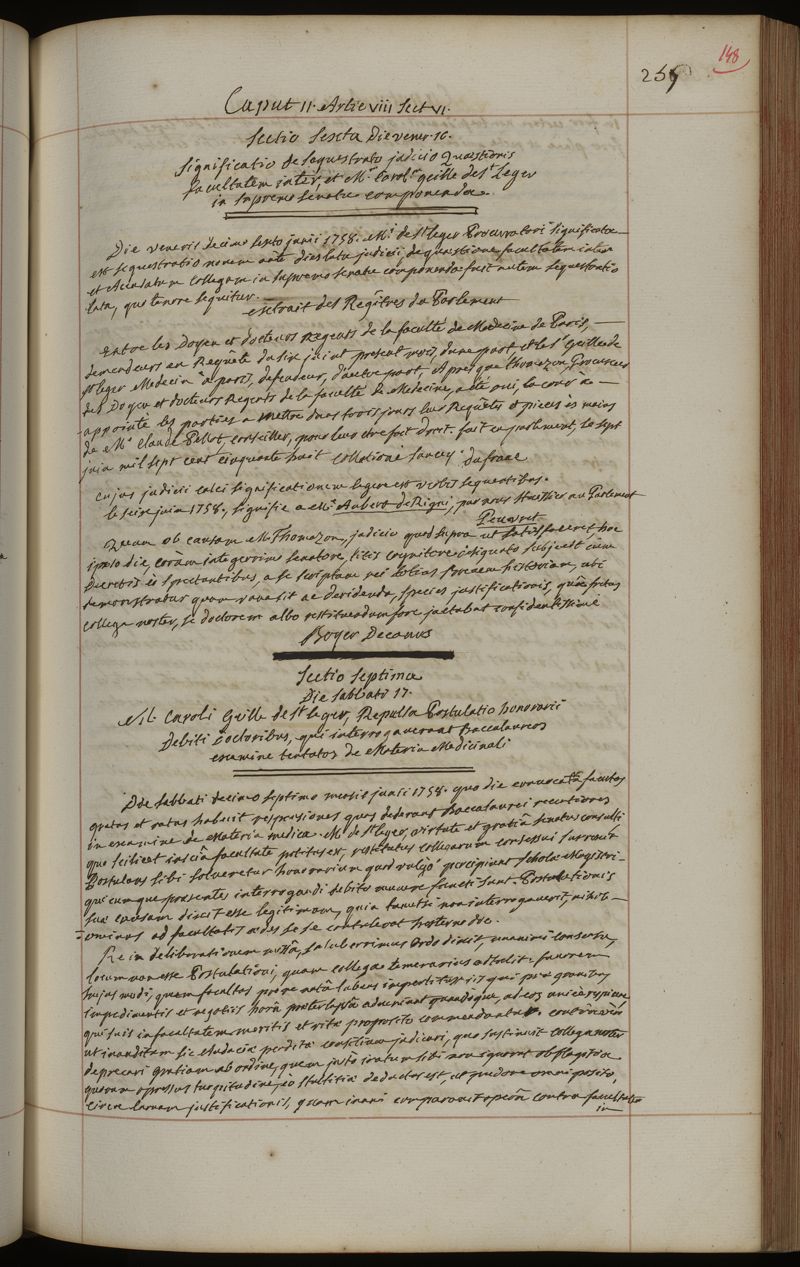 148
259
Caput II. Artic VIII Sect VI.
Sectio Sexta Die vener. 16.
Significatio de sequestrato judicio Quaestionis
facultatem inter, et M. Carol. Guille de St Leger
in supremo senatu componenda.
Die veneris decimo sexto junii 1758. M. de St Leger Procuratori significata
est sequestratio novem ante dies lata judicii, de quaestione facultatem inter
et Accusatum Collegam in supremo senatu componenda fuit autem sequestratio
lata, quo tenore sequitur.
extrait des Regîtres du Parlement
Entre les Doyen et docteurs regents de la faculté de Medecine de Paris,
demandeurs en Requête du six juin present mois, d'une part, et le Sr Guille de
St leger Medecin à paris, defendeur, d'autre part. Après que Thomazon Procureur
des Doyen et docteurs Regents de la faculté de Medecine, a été oui, la cour a
appointé les parties a mettre dans trois jours leur Requêtes et pieces ès mains
de Me Claude Pellot, conseiller, pour leur etre fait droit. fait en parlement, le sept
juin mil sept cent cinquante huit collationé Lancey Dufranc
cujus judicii calci significationem legere est verbis sequentibus.
le seize juin 1758., signifié a Me Aubert de Rigni, par nous huissier au Parlement
Peuvret
Quam ob causam M. Thomazon, judicio quod supra ut satisfaceret, hoc
ipso die, coràm integerrimo senatore, litis cognitore designato subjecit cum
Decretis eò spectantibus, a se scriptam rei totius brevem historiam, ubi
demonstratur quam vana sit ac deridenda, species justificationis, quâ fretus
collega noster, se doctorum albo restituendum fore jactabat confidentissime
Boyer Decanus
Sectio Septima
Die Sabbati 17.
M. Caroli Guille de St leger, Repulsa Postulatio honorarii
Debiti Doctoribus, qui interrogaverant Baccalaureos
examine tentatos de Materia Medicinali
Die sabbati decimo septimo mensis junii 1758. quo die convocata facultas
gratas et ratas habuit responsiones quas dederant Baccalaurei recentiores
in examine de Materia medica. M. de St leger, virtute et gratiâ senatus consulti
quo scilicet insciâ facultate potitus est, restitutus collegarum consessui surrexit
Postulans sibi solveretur honorarium quod vulgò percipiunt scholae Magistri
quicumque praesentes interrogandi debito munere functi sunt. Postulationis
suae causam dixit esse legitimam, quia tametsi non interrogaverit, nihilo
ominus ad facultatis aedes se se contulerat hesterno die.
Re in deliberationem missâ, saluberrimus ordo dixit, unanimi consensu,
locum non esse Postulationi, quam collega temerarius attulit favorem
hujus modi, quem facultas prone autâ lubens impertitur iis qui prae gravibus
impedimentis et negotiis horâ praeterlapsâ adveniunt quandoque, ad eos unicè respicere,
qui suis in facultatem meritis et vitae proposito commendantur. convincere
ut inauditam sic audaciae perditae consilium judicari, quo sustinuit collega noster
deprecari gratiam ab ordine, quem justò iratum sibi non ignorat ob flagitia
quorum oppressus turpitudine eò stultitiae deductus est, ut pudore omni posito,
circa larvam justificationis, quam inani comparavit operâ contra facultatis
in